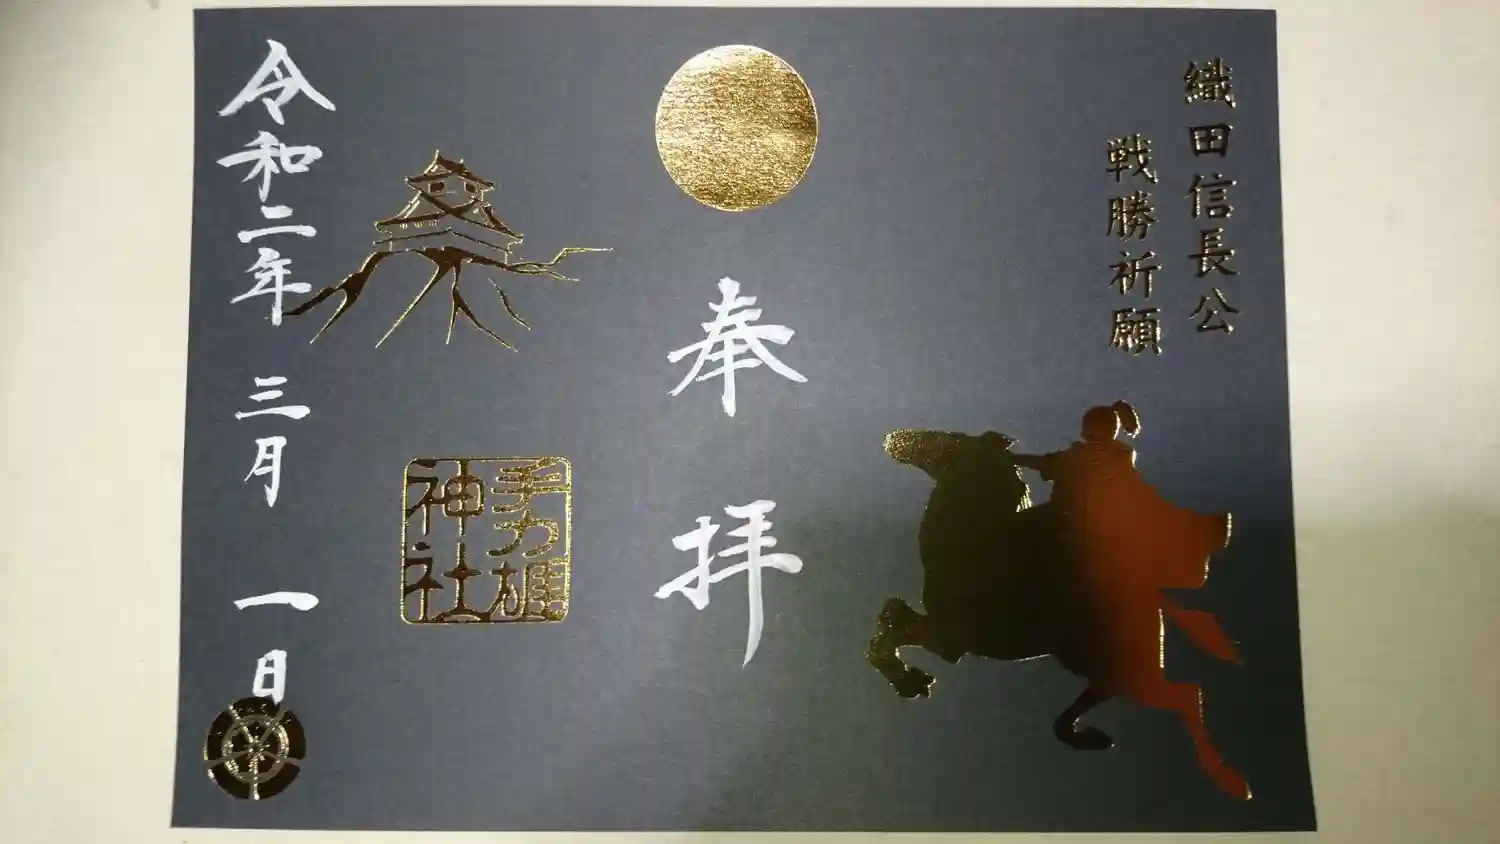 織田信長公
戦勝祈願
奉拝
手力雄
神社
令和二年 三月 一日